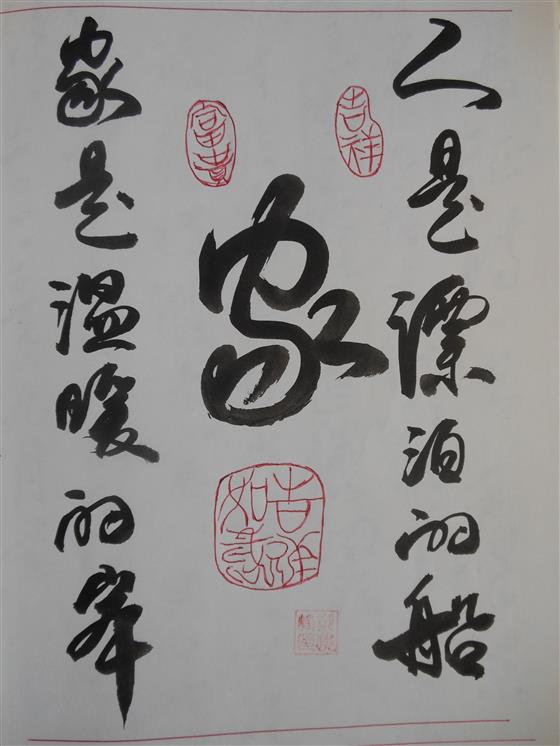 人是漂泊的船
吉祥
家
富貴
吉祥
如意
家是温暖的岸